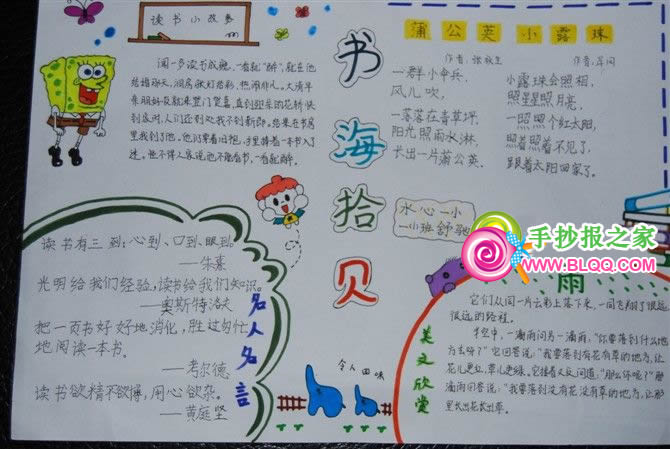 读书小故事
闻一多读书成瘾，一看就"醉"，就在他
结婚那天，洞房张灯结彩，热闹非凡。大清早
亲朋好友都来登门贺喜，直到迎亲的花轿快
到家时，人们还到处找不到新郎。结果在书房
里找到了他。他仍穿着旧袍，手里捧着一本书入了
迷。怪不得人家说他不能看书，一看就醉。
书海拾贝
蒲公英
作者：张秋生
一群小伞兵，
风儿吹，
一落落在青草坪，
阳光照雨水淋，
长出一片蒲公英。
小露珠
小露珠会照相，
照星星照月亮，
一照照个红太阳，
照着照着不见了，
跟着太阳回家了。
水心一小
一小班舒驰
手抄报之家
WWW.BLQQ.COM
读书有三到：心到、口到、眼到。
——朱熹
光明给我们经验，读书给我们知识。
——奥斯特洛夫
把一页书好好地消化，胜过匆忙
地阅读一本书。
——考尔德
读书欲精不欲博，用心欲杂。
——黄庭坚
名人名言
令人回味
美文欣赏
雨
它们从同一片云彩上落下来，一同飞翔了很远
很远的路程。
半空中，一滴雨问另一滴雨，"你要落到什么地
方去呀？"它回答说："我要落到有花有草的地方，让
花儿更红，草儿更绿。它接着又反问道，"那么你呢？"那
滴雨回答说："我要落到没有花没有草的地方，让那
里长出花长出草。